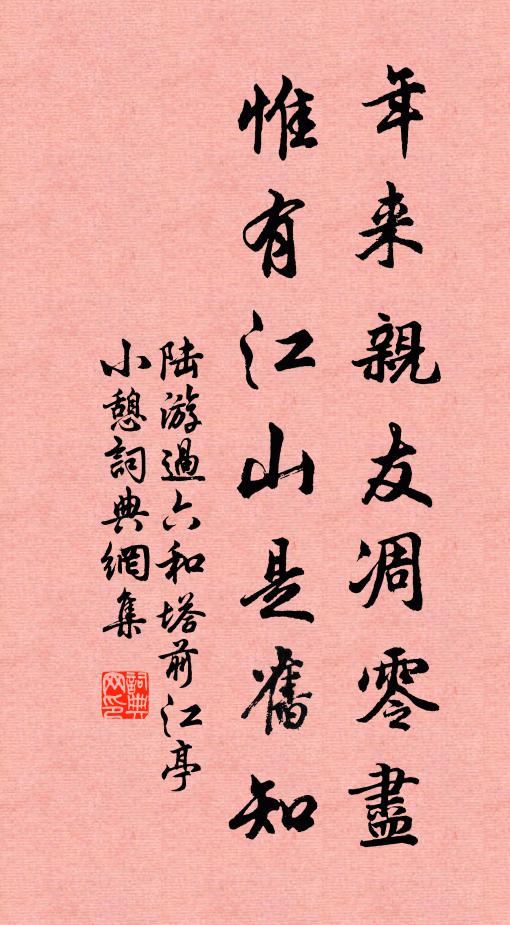 年来親友凋零盡
惟有江山是舊知
陆游過六和塔前江亭
小憩詞典網集
詞典网印